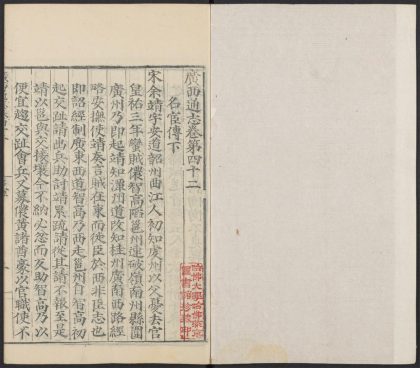 廣西通志卷第四十二
名宦傳下
宋余靖字安道韶州曲江人初知虔州以父憂去官
皇祐三年蠻賊儂智高陷邕州連破嶺南州縣圍
廣州乃即起靖知潭州道改知桂州廣南西路經
略安撫使靖奏言賊在東而徙臣於西非臣志也
即詔經制廣東西道智高乃西走邕州自智高初
起交趾請出兵助討靖累疏請從其請不報至是
靖以邕與交接壤今不納必忿而反助智高乃以
便宜趣交趾會兵又募儂黃諸酋豪以官職使不
哈佛大學哈佛燕京
圖書館珍藏印